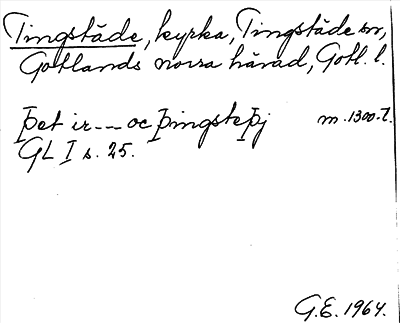 Tingstäde, kyrka, Tingstäde sn,
Gotlands norra härad, Gotl. l.
Þet ir --- oc Þingsteþj m. 1300-t.
GL I s. 25.
G.E. 1964.